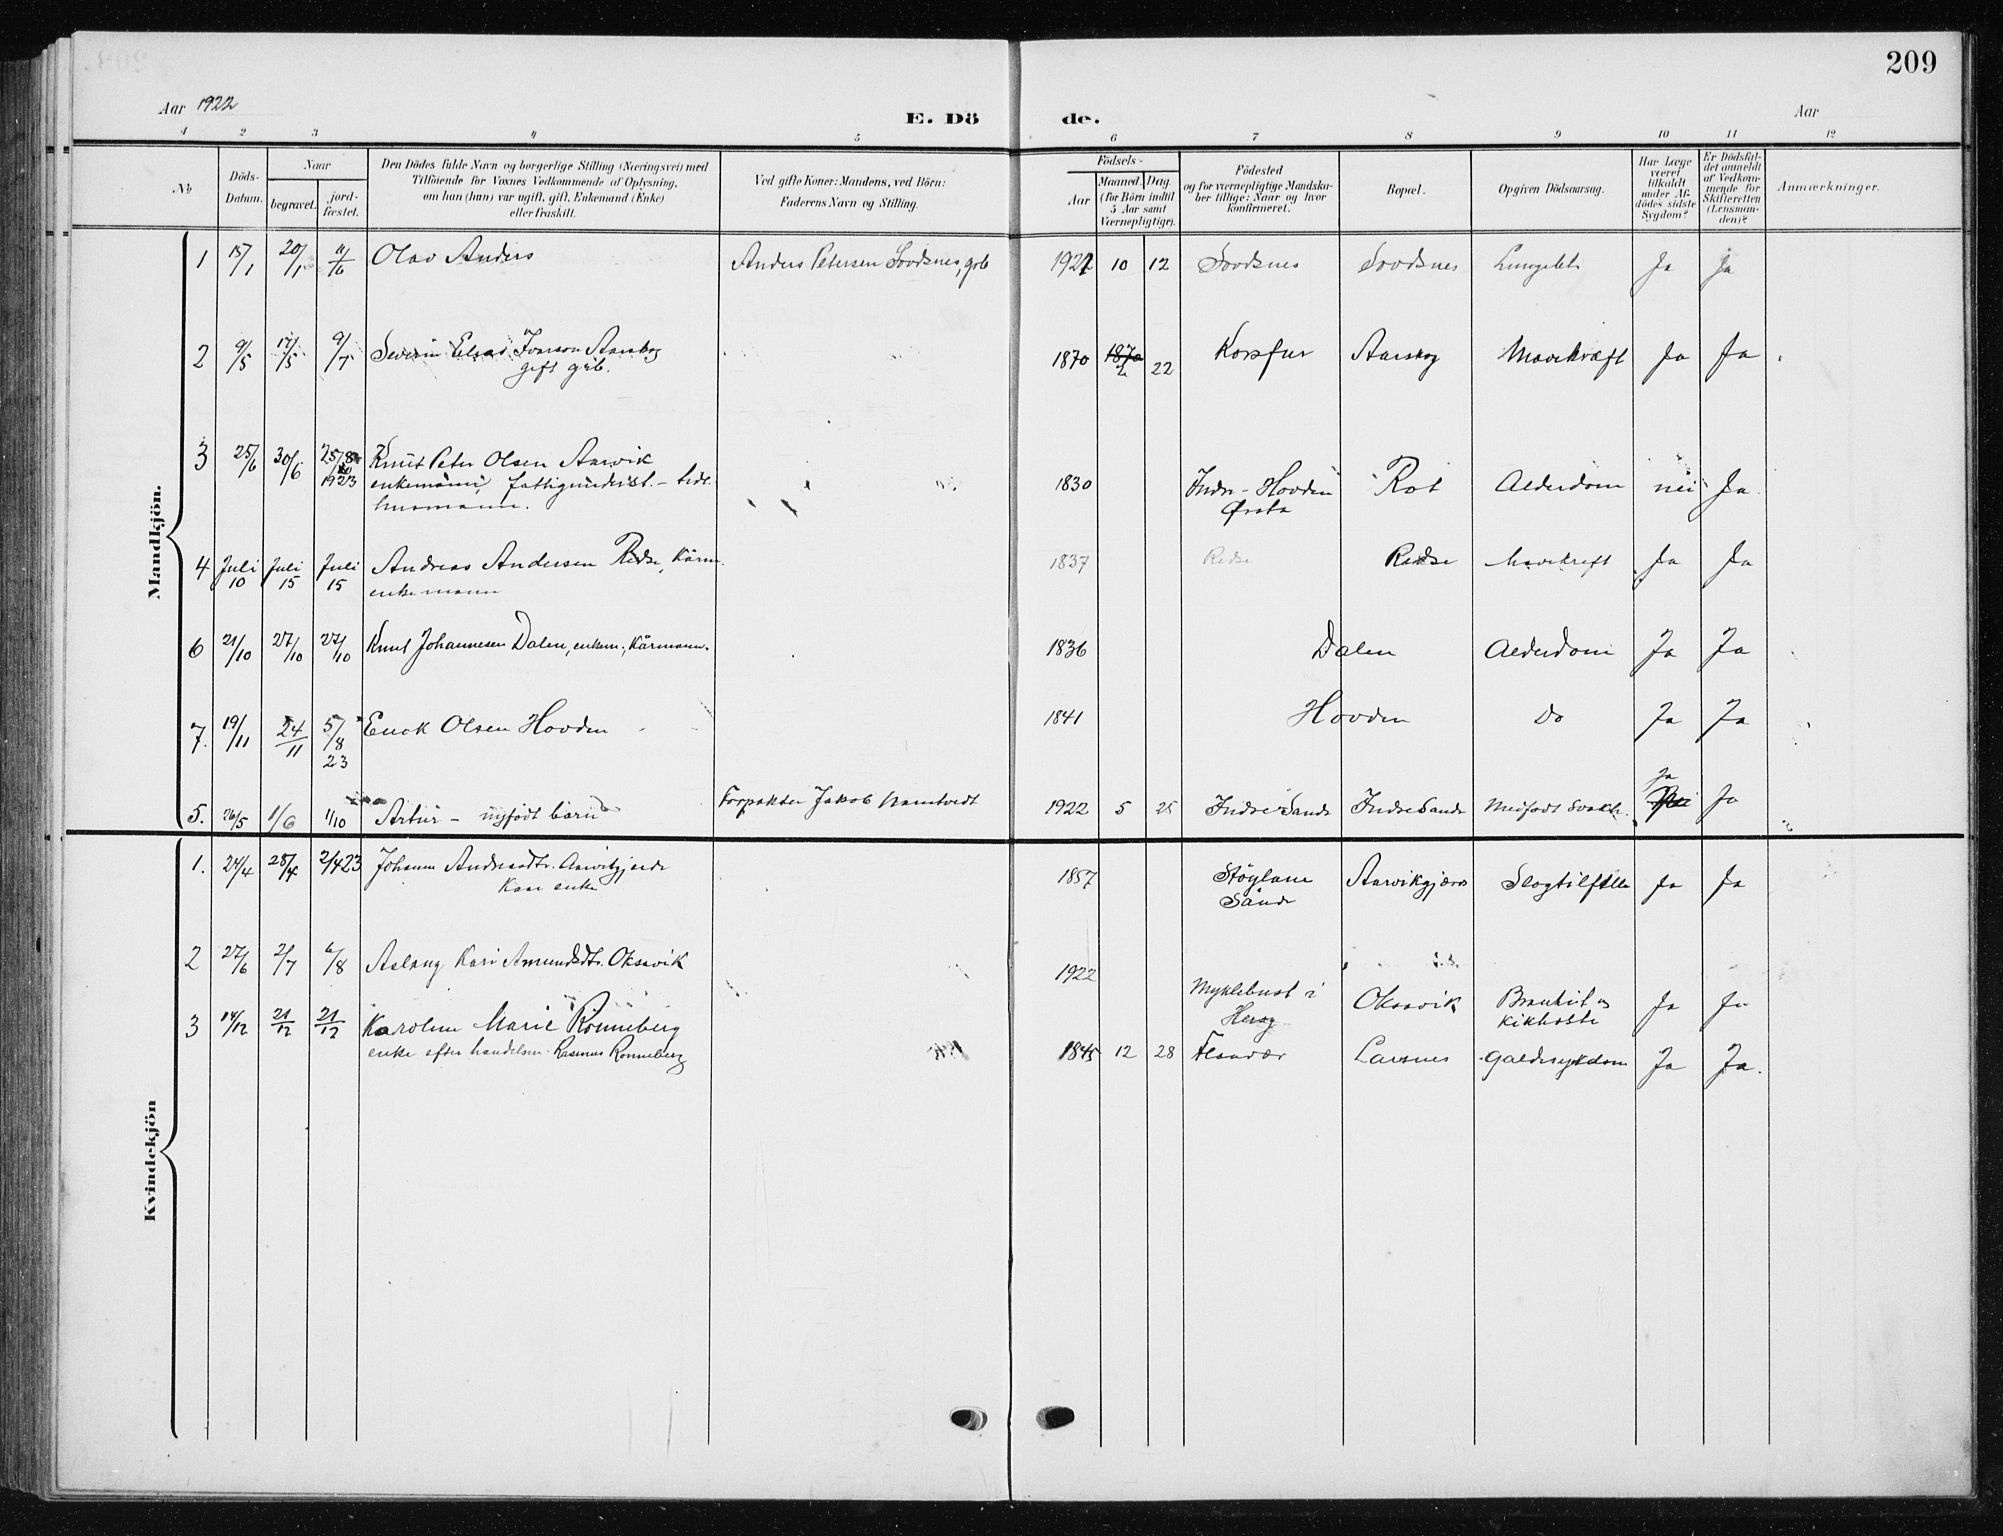 209
Aar 1922
E. Dö
de.
Aar
1 2 3 4 5 6 7 8 9 10 11 12
No
Döds-
Datum.
Naar
begravet.
jord-
fæstet.
Den Dödes fulde Navn og borgerlige Stilling (Næringsvei) med
Tilföiende for Voxnes Vedkommende af Oplysning,
om han (hun) var ugift, gift, Enkemand (Enke)
eller fraskilt.
Ved gifte Koner: Mandens, ved Börn:
Faderens Navn og Stilling.
Födsels-
Aar
Maaned. Dag.
(for Börn indtil
5 Aar samt
Værnepligtige).
Födested
og for værnepligtige Mandska-
ber tillige: Naar og hvor
konfirmeret.
Bopæl.
Opgiven Dödsaarsag.
Har Læge
været
tilkaldt
under Af-
dödes sidste
Sygdom?
Er Dödsfal-
det anmeldt
af Vedkom-
mende for
Skifteretten
(Lensman-
den)?
Anmærkninger.
Mandkjön.
1 15/1 20/1 11/6 Olav Anders Anders Petersen Sovdsnes, grb 1921 10 12 Sovdsnes Sovdsnes Ja Ja
2 9/5 17/5 9/7 Severin Elias Ivarson Aarskog 1870 1870 2 22 Korsfur Aarskog Mavekræft Ja Ja
gift grb.
3 25/6 30/6 25/8 1923 Knut Peter Olsen Aarvik 1830 Indre-Hovden Rot Alderdom nei Ja
enkemann, fattigunderst. - tidl. Ørsta
husmann.
4 Juli 10 Juli 15 Juli 15 Andreas Andersen Redse, kårm. 1837 Redse Redse Mavekreft Ja Ja
enkemann
6 21/10 27/10 27/10 Knut Johannesen Dalen, enkem., kårmann. 1836 Dalen Alderdom Ja Ja
7. 19/11 24/11 5/8 23 Enok Olsen Hovden 1841 Hovden Do Ja Ja
5. 26/5 1/6 1/10 Artur - nyfödt barn Forpakter Jakob 1922 5 25 Indre Sande Indre Sande Medfødt Svakh. Ja Ja
Kvindekjön
1. 24/4 28/4 2/4 23 Johanne Andreasdtr. Aarvikgjerde 1857 Støylane Aarvikgjære Slagtilfelle Ja Ja
Kaar enke Sande
2 27/6 2/7 6/8 Aslaug Kari Amundsdtr. Oksavik 1922 Myklebust i Oksavik Bronkit og Ja Ja
Herøy kikhoste
3 14/12 21/12 21/12 Karoline Marie Rønneberg 1845 12 28 Flaavær Larsnes Galdesykdom Ja Ja.
enke efter handelsm. Rasmus Rønneberg